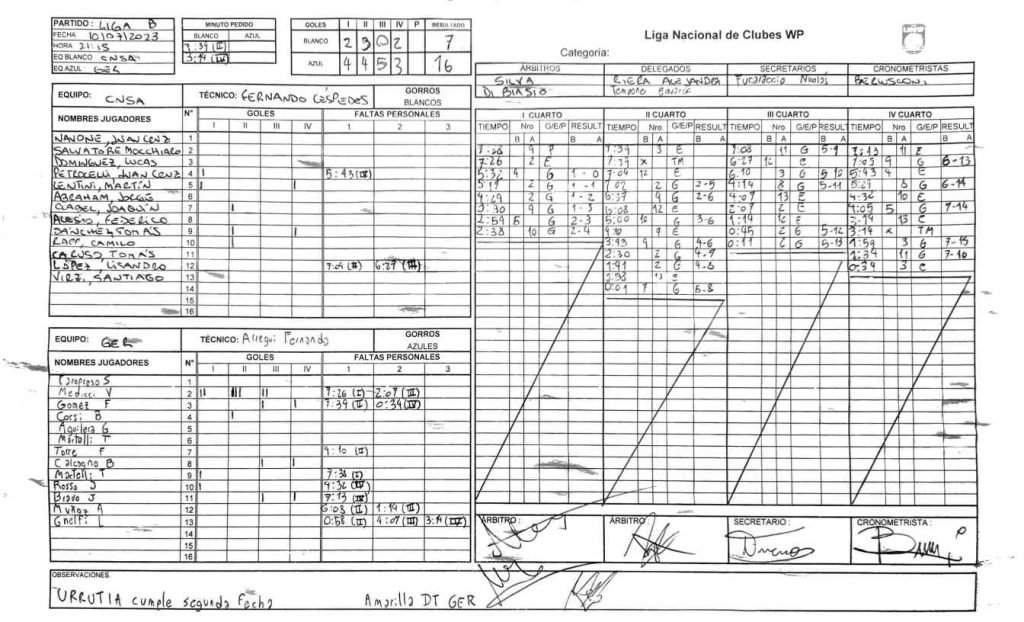 PARTIDO: LIGA B
FECHA 10/07/2023
HORA 21:15
EQ BLANCO CNSA
EQ AZUL GER
MINUTO PEDIDO
BLANCO AZUL
7:39 (II)
3:14 (IV)
GOLES I II III IV P RESULTADO
BLANCO 2 3 0 2 7
AZUL 4 4 5 3 16
Liga Nacional de Clubes WP
Categoría:
ÁRBITROS DELEGADOS SECRETARIOS CRONOMETRISTAS
SILVA RIERA ALEJANDRA Nicolás
DI BIASIO
EQUIPO: CNSA TÉCNICO: FERNANDO CÉSPEDES GORROS BLANCOS
NOMBRES JUGADORES N° GOLES FALTAS PERSONALES
I II III IV 1 2 3
NANONE, JUAN CRUZ 1
SALVATORE MOCCHIARO 2
DOMINGUEZ, LUCAS 3
PETROCELLI, JUAN CRUZ 4 5:43 (IV)
LENTINI, MARTÍN 5
ABRAHAM, 6
JOAQUÍN 7
ALESIO, FEDERICO 8
SANCHEZ TOMÁS 9
RAPP, CAMILO 10
CARUSO, TOMÁS 11
LÓPEZ, LISANDRO 12 7:04 (II) 6:27 (III)
SANTIAGO 13
14
15
16
EQUIPO: GER TÉCNICO: Arregui Fernando GORROS AZULES
NOMBRES JUGADORES N° GOLES FALTAS PERSONALES
I II III IV 1 2 3
S 1
Medicci V 2 7:26 (I) 2:07 (III)
Gomez F 3 7:39 (II) 0:34 (IV)
B 4
Aguilera G 5
T 6
Torre F 7
Calcagno B 8
T 9
Rosso J 10 4:32 (IV)
Bravo J 11 7:13 (IV)
Muñoz A 12 6:03 (II) 1:14 (III)
13 0:58 (II) 4:07 (III) 3:14 (IV)
14
15
16
I CUARTO II CUARTO III CUARTO IV CUARTO
TIEMPO Nro G/E/P RESULT TIEMPO Nro G/E/P RESULT TIEMPO Nro G/E/P RESULT TIEMPO Nro G/E/P RESULT
B A B A B A B A B A B A B A B A
7:39 3 E 7:08 11 G 5-9 7:13 11 E
7:26 2 E 7:39 x TM 6:27 12 E 7:05 9 G 6-13
5:32 4 G 1-0 7:04 12 E 6:10 3 G 5-10 5:43 4 E
5:17 2 G 1-1 7:02 2 G 2-5 4:14 8 G 5-11 5:29 8 G 6-14
4:29 2 G 1-2 6:37 4 G 2-6 4:07 13 E 4:32 10 E
3:30 9 G 1-3 6:03 12 E 2:07 2 E 4:05 5 G 7-14
2:59 5 G 2-3 5:00 10 G 3-6 1:14 12 E 3:14 13 E
2:38 10 G 2-4 0:45 2 G 5-12 3:14 x TM
3:43 9 G 4-6 0:11 2 G 5-13 1:59 3 G 7-15
2:30 2 G 4-7 1:34 11 G
1:41 2 G 4-8 0:34 3 E
0:58 13 E
0:01 7 G 5-8
ÁRBITRO: ÁRBITRO: SECRETARIO: CRONOMETRISTA:
OBSERVACIONES:
URRUTIA cumple segunda fecha Amarilla DT GER